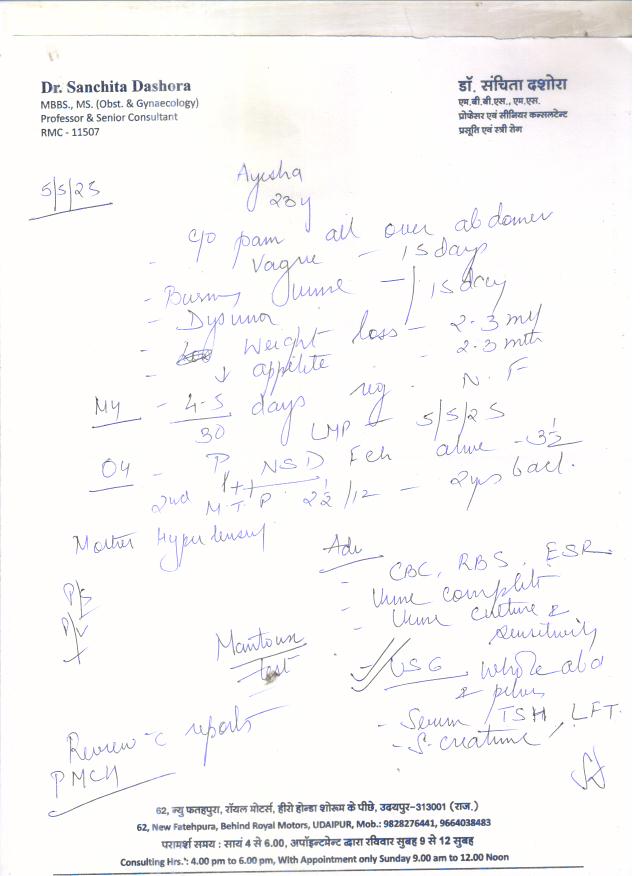 Dr. Sanchita Dashora
MBBS., MS. (Obst. & Gynaecology)
Professor & Senior Consultant
RMC - 11507
डॉ. संचिता दशोरा
एम.बी.बी.एस., एम.एस.
प्रोफेसर एवं सीनियर कन्सलटेन्ट
प्रसूति एवं स्त्री रोग
5/5/25
Ayesha
23y
c/o pain all over abdomen
- Vague - 15 days
- Burning Urine - 15 day
- Dysuria
- Weight loss - 2-3 mth
- ↓ appitite - 2-3 mth
MH - 4-5 days reg. N. F
30
LMP - 5/5/25
OH - P1+1 NSD Fch alive - 3½
2nd M.T.P. 2½/12 - 2ys back.
Mother Hypertensive
P/S
P/V
Mantoux
test
Adv
- CBC, RBS, ESR
- Urine complete
- Urine culture &
sensitivity
USG whole abd
& pelvis
- Serum TSH, LFT.
- S. creatinine
Review c reports
PMCH
62, न्यु फतहपुरा, रॉयल मोटर्स, हीरो होन्डा शोरूम के पीछे, उदयपुर-313001 (राज.)
62, New Fatehpura, Behind Royal Motors, UDAIPUR, Mob.: 9828276441, 9664038483
परामर्श समय : सायं 4 से 6.00, अपॉइन्टमेन्ट द्वारा रविवार सुबह 9 से 12 सुबह
Consulting Hrs.: 4.00 pm to 6.00 pm, With Appointment only Sunday 9.00 am to 12.00 Noon